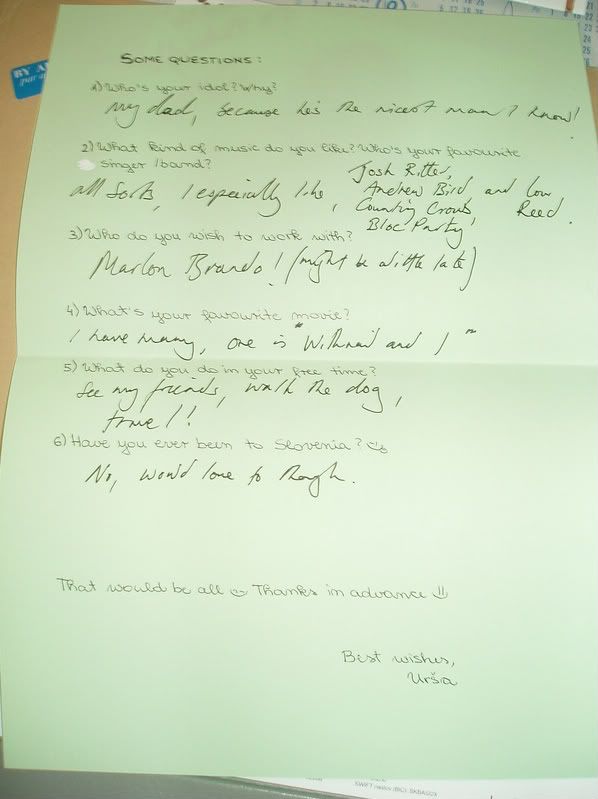 SOME QUESTIONS:
1) Who's your idol? Why?
My dad, because he's the nicest man I know!
2) What kind of music do you like? Who's your favourite
singer/band?
all sorts, I especially like, Josh Ritter,
Andrew Bird and Lou Reed.
Counting Crows,
Bloc Party
3) Who do you wish to work with?
Marlon Brando! (might be a little late)
4) What's your favourite movie?
I have many, one is "Withnail and I"
5) What do you do in your free time?
See my friends, walk the dog,
travel!
6) Have you ever been to Slovenia?
No, would love to though.
That would be all Thanks in advance
Best wishes,
Urša